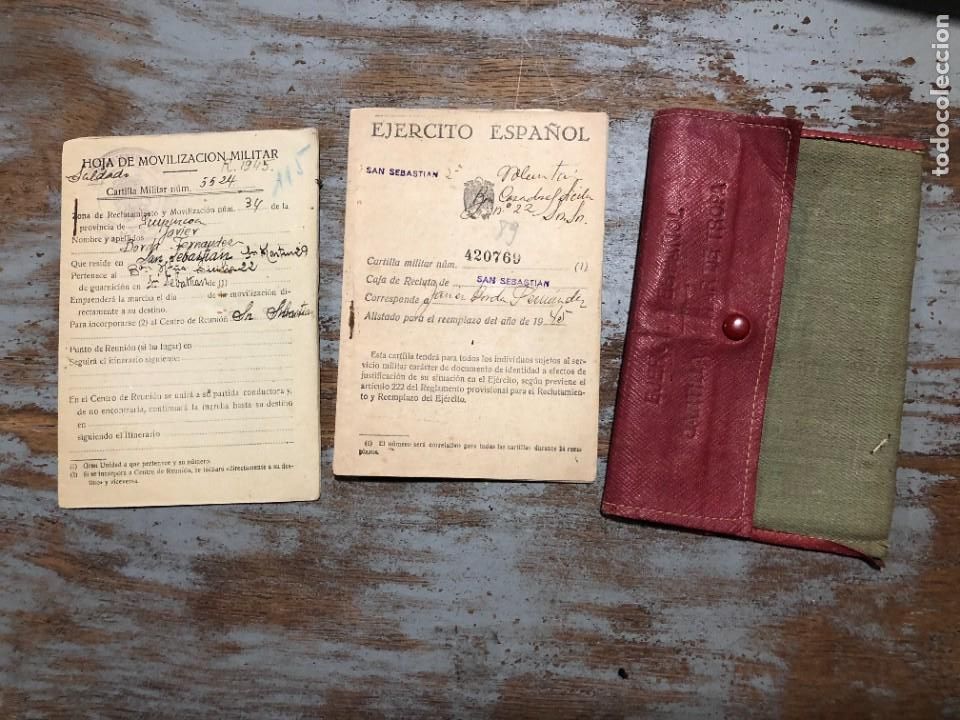 HOJA DE MOVILIZACION MILITAR
Soldado R. 1945.
115
Cartilla Militar núm. 5524
Zona de Reclutamiento y Movilización núm. 34 de la
provincia de Guipúzcoa
Nombre y apellidos Javier
Fernandez
Que reside en San Sebastian Sn Martin 29
Pertenece al Bón 22
de guarnición en Sn Sebastian de (1)
Emprenderá la marcha el día de movilización di-
rectamente a su destino.
Para incorporarse (2) al Centro de Reunión Sn Sebastian
Punto de Reunión (si ha lugar) en
Seguirá el itinerario siguiente:
En el Centro de Reunión se unirá a su partida conductora y,
de no encontrarla, continuará la marcha hasta su destino
en
siguiendo el itinerario
(1) Gran Unidad a que pertenece y su número.
(2) Si se incorpora a Centro de Reunión, se tachará «directamente a su des-
tino» y viceversa.
EJERCITO ESPAÑOL
SAN SEBASTIAN 2ª
nº 22 Sn Sn.
89
Cartilla militar núm. 420769 (1)
Caja de Recluta de SAN SEBASTIAN
Corresponde a Javier Fernández
Alistado para el reemplazo del año de 1945
Esta cartilla tendrá para todos los individuos sujetos al ser-
vicio militar carácter de documento de identidad a efectos de
justificación de su situación en el Ejército, según previene el
artículo 222 del Reglamento provisional para el Reclutamien-
to y Reemplazo del Ejército.
(1) El número será correlativo para todas las cartillas durante 24 reem-
plazos.
EJERCITO ESPAÑOL
CARTILLA MILITAR DE TROPA
todocoleccion